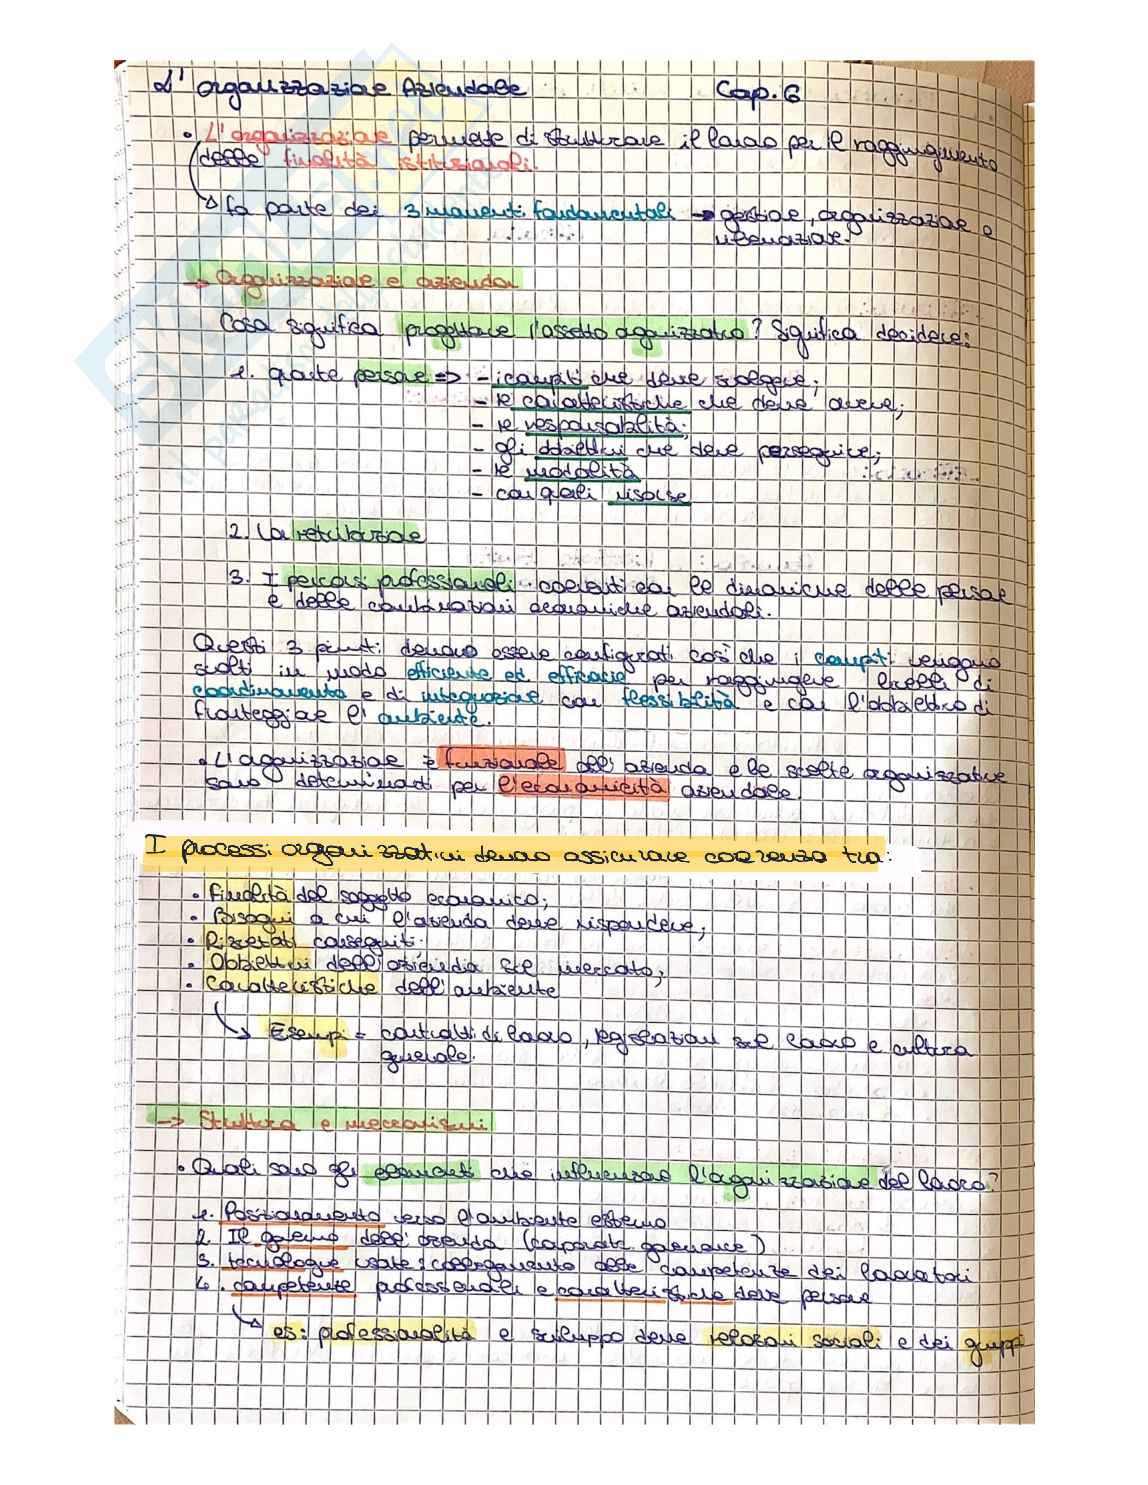 L'organizzazione Aziendale Cap. 6
• L'organizzazione permette di strutturare il lavoro per il raggiungimento
delle finalità istituzionali.
fa parte dei 3 momenti fondamentali → gestione, organizzazione e
rilevazione.
→ Organizzazione e azienda
Cosa significa progettare l'assetto organizzativo? Significa decidere:
1. quante persone => - i compiti che deve svolgere;
- le caratteristiche che deve avere;
- le responsabilità;
- gli obiettivi che deve perseguire;
- le modalità
- con quali risorse
2. La retribuzione
3. I percorsi professionali coerenti con le dinamiche delle persone
e delle combinazioni economiche aziendali.
Questi 3 punti devono essere configurati così che i compiti vengono
svolti in modo efficiente ed efficace per raggiungere livelli di
coordinamento e di integrazione con flessibilità e con l'obiettivo di
fronteggiare l'ambiente.
• L'organizzazione è funzionale all'azienda e le scelte organizzative
sono determinati per l'economicità aziendale.
I processi organizzativi devono assicurare coerenza tra:
• Finalità del soggetto economico;
• Bisogni a cui l'azienda deve rispondere;
• Risultati conseguiti.
• Obiettivi dell'azienda sul mercato;
• Caratteristiche dell'ambiente
Esempi = contratti di lavoro, legislazioni sul lavoro e cultura
generale.
→ Struttura e meccanismi
• Quali sono gli elementi che influenzano l'organizzazione del lavoro?
1. Posizionamento verso l'ambiente esterno
2. Il governo dell'azienda (corporate governance)
3. tecnologie usate: collegamento delle competenze dei lavoratori
4. competenze professionali e caratteristiche delle persone
es: professionalità e sviluppo delle relazioni sociali e dei gruppi